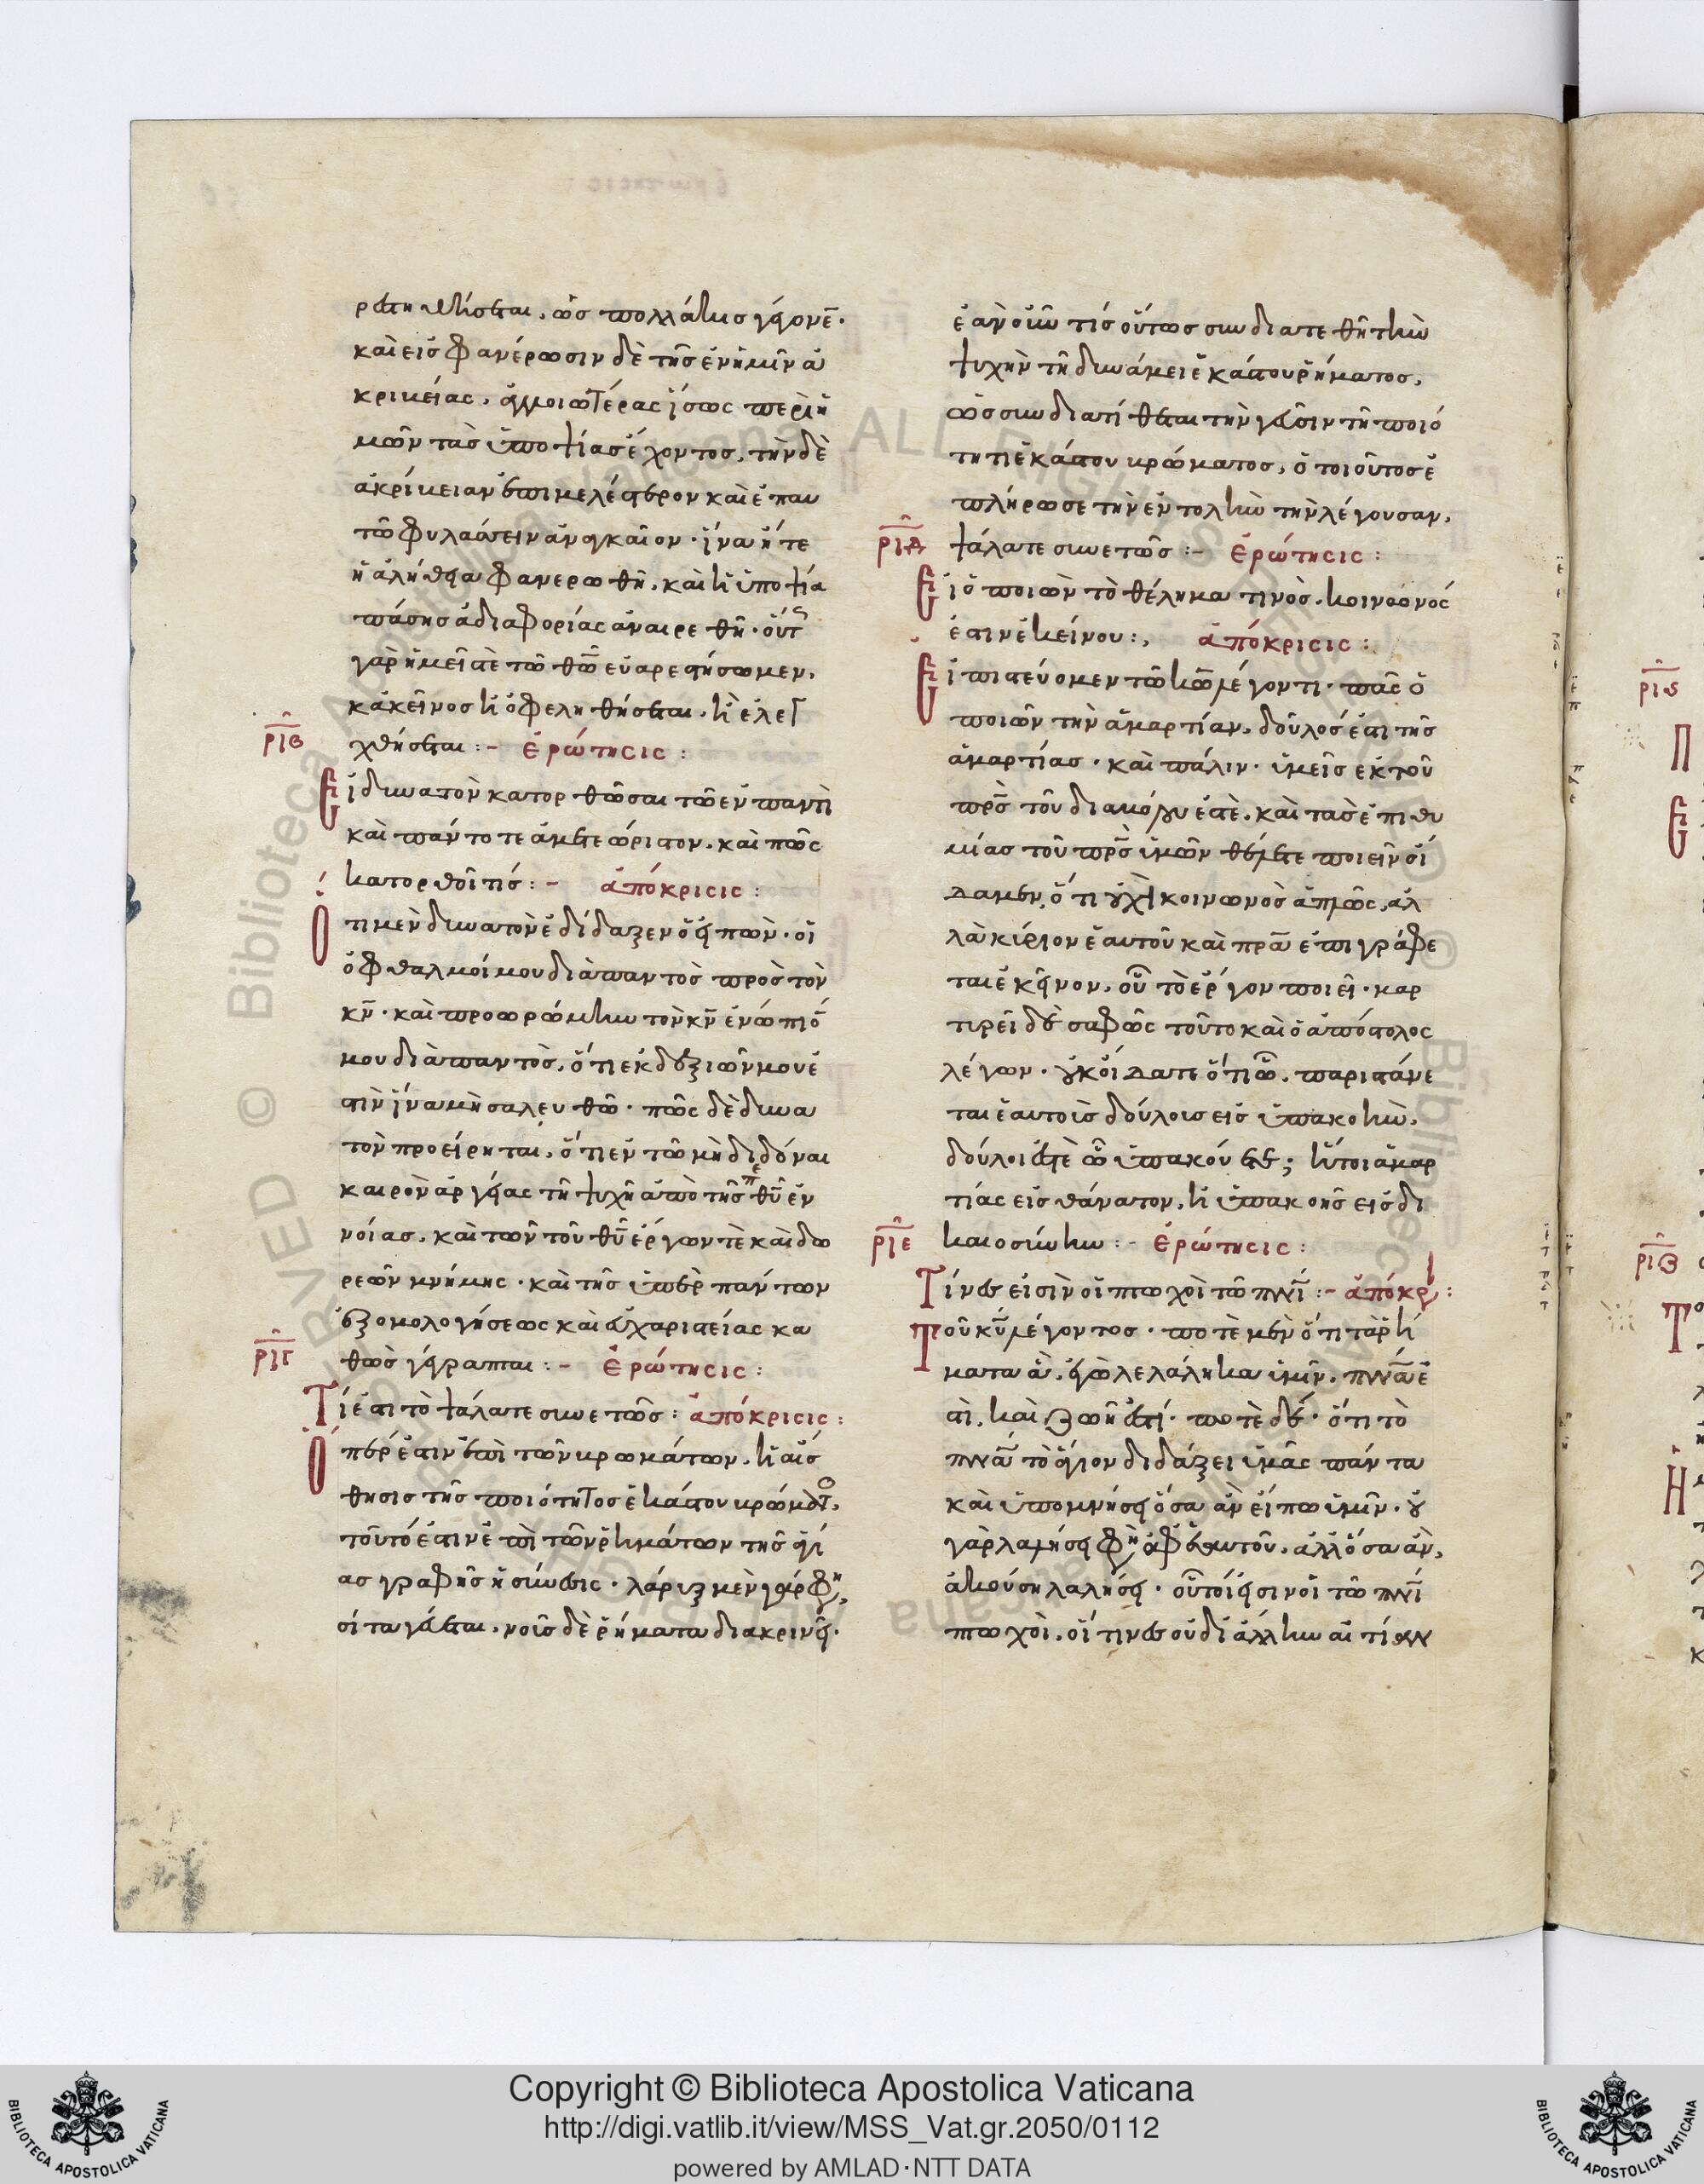 ρατηθήσεται, ὡς πολλάκις γέγονε̅·
καὶ εἰς φανέρωσιν δὲ τῆς ἐν ἡμῖν ἀ
κριβείας, ἀμφοτέρας ἴσως περὶ ἡ
μῶν τὰς ὑποψίας ἔχοντος, τὴν δὲ
ἀκρίβειαν ἐπιμελέστερον καὶ ἐπ' αυ
τῶ φυλάσσειν ἀναγκαῖον· ἵνα ἥ τε
ἡ ἀλήθεια φανερωθῆ, καὶ ἡ ὑποψία
πάσης ἀδιαφορίας ἀναιρεθῆ· οὕτ
γὰρ ἡμεῖς τὲ τῶ θω̅ εὐαρεστήσωμεν,
κἀκεῖνος ἢ ὀφεληθήσεται, ἢ ἐλεγ
ρ̅ι̅β̅
χθήσεται:– ἐρώτησις:
Εἰ δυνατὸν κατορθῶσαι τῶ ἐν παντὶ
καὶ πάντοτε ἀμετεώριστον, καὶ πῶς
κατορθοῖ τίς:– ἀπόκρισις:
Ὅτι μὲν δυνατὸν ἐδίδαξεν ὁ εἰπών· οἱ
ὀφθαλμοί μου διὰ παντὸς πρὸς τὸν
κν̅· καὶ προωρώμην τὸν κν̅ ἐνώπιό
μου διὰ παντὸς, ὅτι ἐκ δεξιῶν μου ἐ
στὶν ἵνα μὴ σαλευθῶ· πῶς δὲ δυνα
τὸν προείρηται, ὅτι ἐν τῶ μὴ διδόναι
καιρὸν ἀργίας τῆ ψυχῆ ἀπὸ τῆς περὶ θυ̅ ἐν
νοίας, καὶ τῶν τοῦ θυ̅ ἔργων τὲ καὶ δω
ρεῶν μνήμης· καὶ τῆς ὑπὲρ πάντων
ἐξομολογήσεως καὶ εὐχαριστείας κα
ρ̅ι̅γ̅
θὼς γέγραπται:– ἐρώτησις:
Τί ἐστι τὸ ψάλατε συνετῶς: ἀπόκρισις:
Ὅπερ ἐστὶν ἐπὶ τῶν βρωμάτων, ἡ αἴσ
θησις τῆς ποιότητος ἑκάστου βρώματο,
τοῦτό ἐστιν ἐπὶ τῶν ῥημάτων τῆς ἁγί
ας γραφῆς ἡ σύνεσις· λάρυξ μὲν γάρ φη
σί τα γεύεται, νοῦς δὲ ῥήματα διακρινεῖ·
ἐὰν οὖν τίς οὕτως συνδιατεθῆ τὴν
ψυχὴν τῆ δυνάμει ἑκάστου ῥήματος,
ὡς συνδιατίθεται τὴν γεῦσιν τῆ ποιό
τητι ἑκάστου βρώματος, ὁ τοιοῦτος ἐ
πλήρωσε τὴν ἐντολὴν τὴν λέγουσαν,
ρ̅ι̅δ̅
ψάλατε συνετῶς:– ἐρώτησις:
Εἰ ὁ ποιῶν τὸ θέλημα τινὸς, κοινωνός
ἐστιν ἐκείνου:, ἀπόκρισις:
Εἰ πιστεύομεν τῶ κω̅ λέγοντι· πᾶς ὁ
ποιῶν τὴν ἁμαρτίαν, δοῦλός ἐστι τῆς
ἁμαρτίας· καὶ πάλιν· ὑμεῖς ἐκ τοῦ
πρς̅ τοῦ διαβόλου ἐστὲ, καὶ τὰς ἐπιθυ
μίας τοῦ πρς̅ ὑμῶν θέλετε ποιεῖν οἴ
δαμεν, ὅτι οὐχὶ κοινωνὸς ἁπλῶς, ἀλ
λὰ κύριον ἑαυτοῦ καὶ πρα̅ ἐπιγράφε
ται ἐκεῖνον, οὗ τὸ ἔργον ποιεῖ· μαρ
τυρεῖ δὲ σαφῶς τοῦτο καὶ ὁ ἀπόστολος
λέγων· οὐκ οἴδατε ὅτι ὧ, παριστάνε
ται ἑαυτοὺς δούλους εἰς ὑπακοὴν,
δοῦλοι ἐστὲ ὧ ὑπακούετε; ἤτοι ἁμαρ
τίας εἰς θάνατον, ἢ ὑπακοῆς εἰς δι
ρ̅ι̅ε̅
καιοσύνην:– ἐρώτησις:
Τίνες εἰσὶν οἱ πτωχοὶ τῶ πνι̅:– ἀπόκρ:
Τοῦ κυ̅ λέγοντος· ποτὲ μὲν ὅτι τὰ ῥή
ματα ἃ, ἐγὼ λελάληκα ὑμῖν, πνα̅ ἐ
στὶ, καὶ ζωῆ ἐστί· ποτὲ δὲ· ὅτι τὸ
πνα̅ τὸ ἅγιον διδάξει ὑμᾶς πάντα
καὶ ὑπομνήσει ὅσα ἂν εἴπω ὑμῖν· οὐ
γὰρ λαλήσει φη ἀφ' ἑαυτοῦ, ἀλλ' ὅσα ἂν,
ἀκούση λαλήσει· οὗτοί εἰσιν οἱ τῶ πνι̅
πτωχὸι, οἵτινες οὐ δι' ἄλλην αἰτίαν
ρ̅ι̅ς̅
Π
Ε
ρ̅ι̅ζ̅
Το
Η
Copyright © Biblioteca Apostolica Vaticana
http://digi.vatlib.it/view/MSS_Vat.gr.2050/0112
powered by AMLAD·NTT DATA
BIBLIOTECA APOSTOLICA VATICANA
BIBLIOTECA APOSTOLICA VATICANA